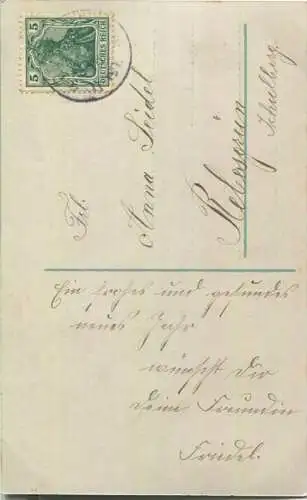 5 5
DEUTSCHES REICH
Frl.
Anna Seidel
Schulberg
Ein frohes und gesundes
neues Jahr
wünscht Dir
Deine Freundin
Friedel.